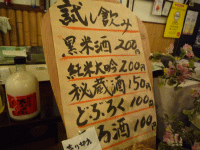 試し飲み
黒米酒 200円
純米大吟 200円
秘蔵酒 150円
どぶろく 100円
ろ酒 100円